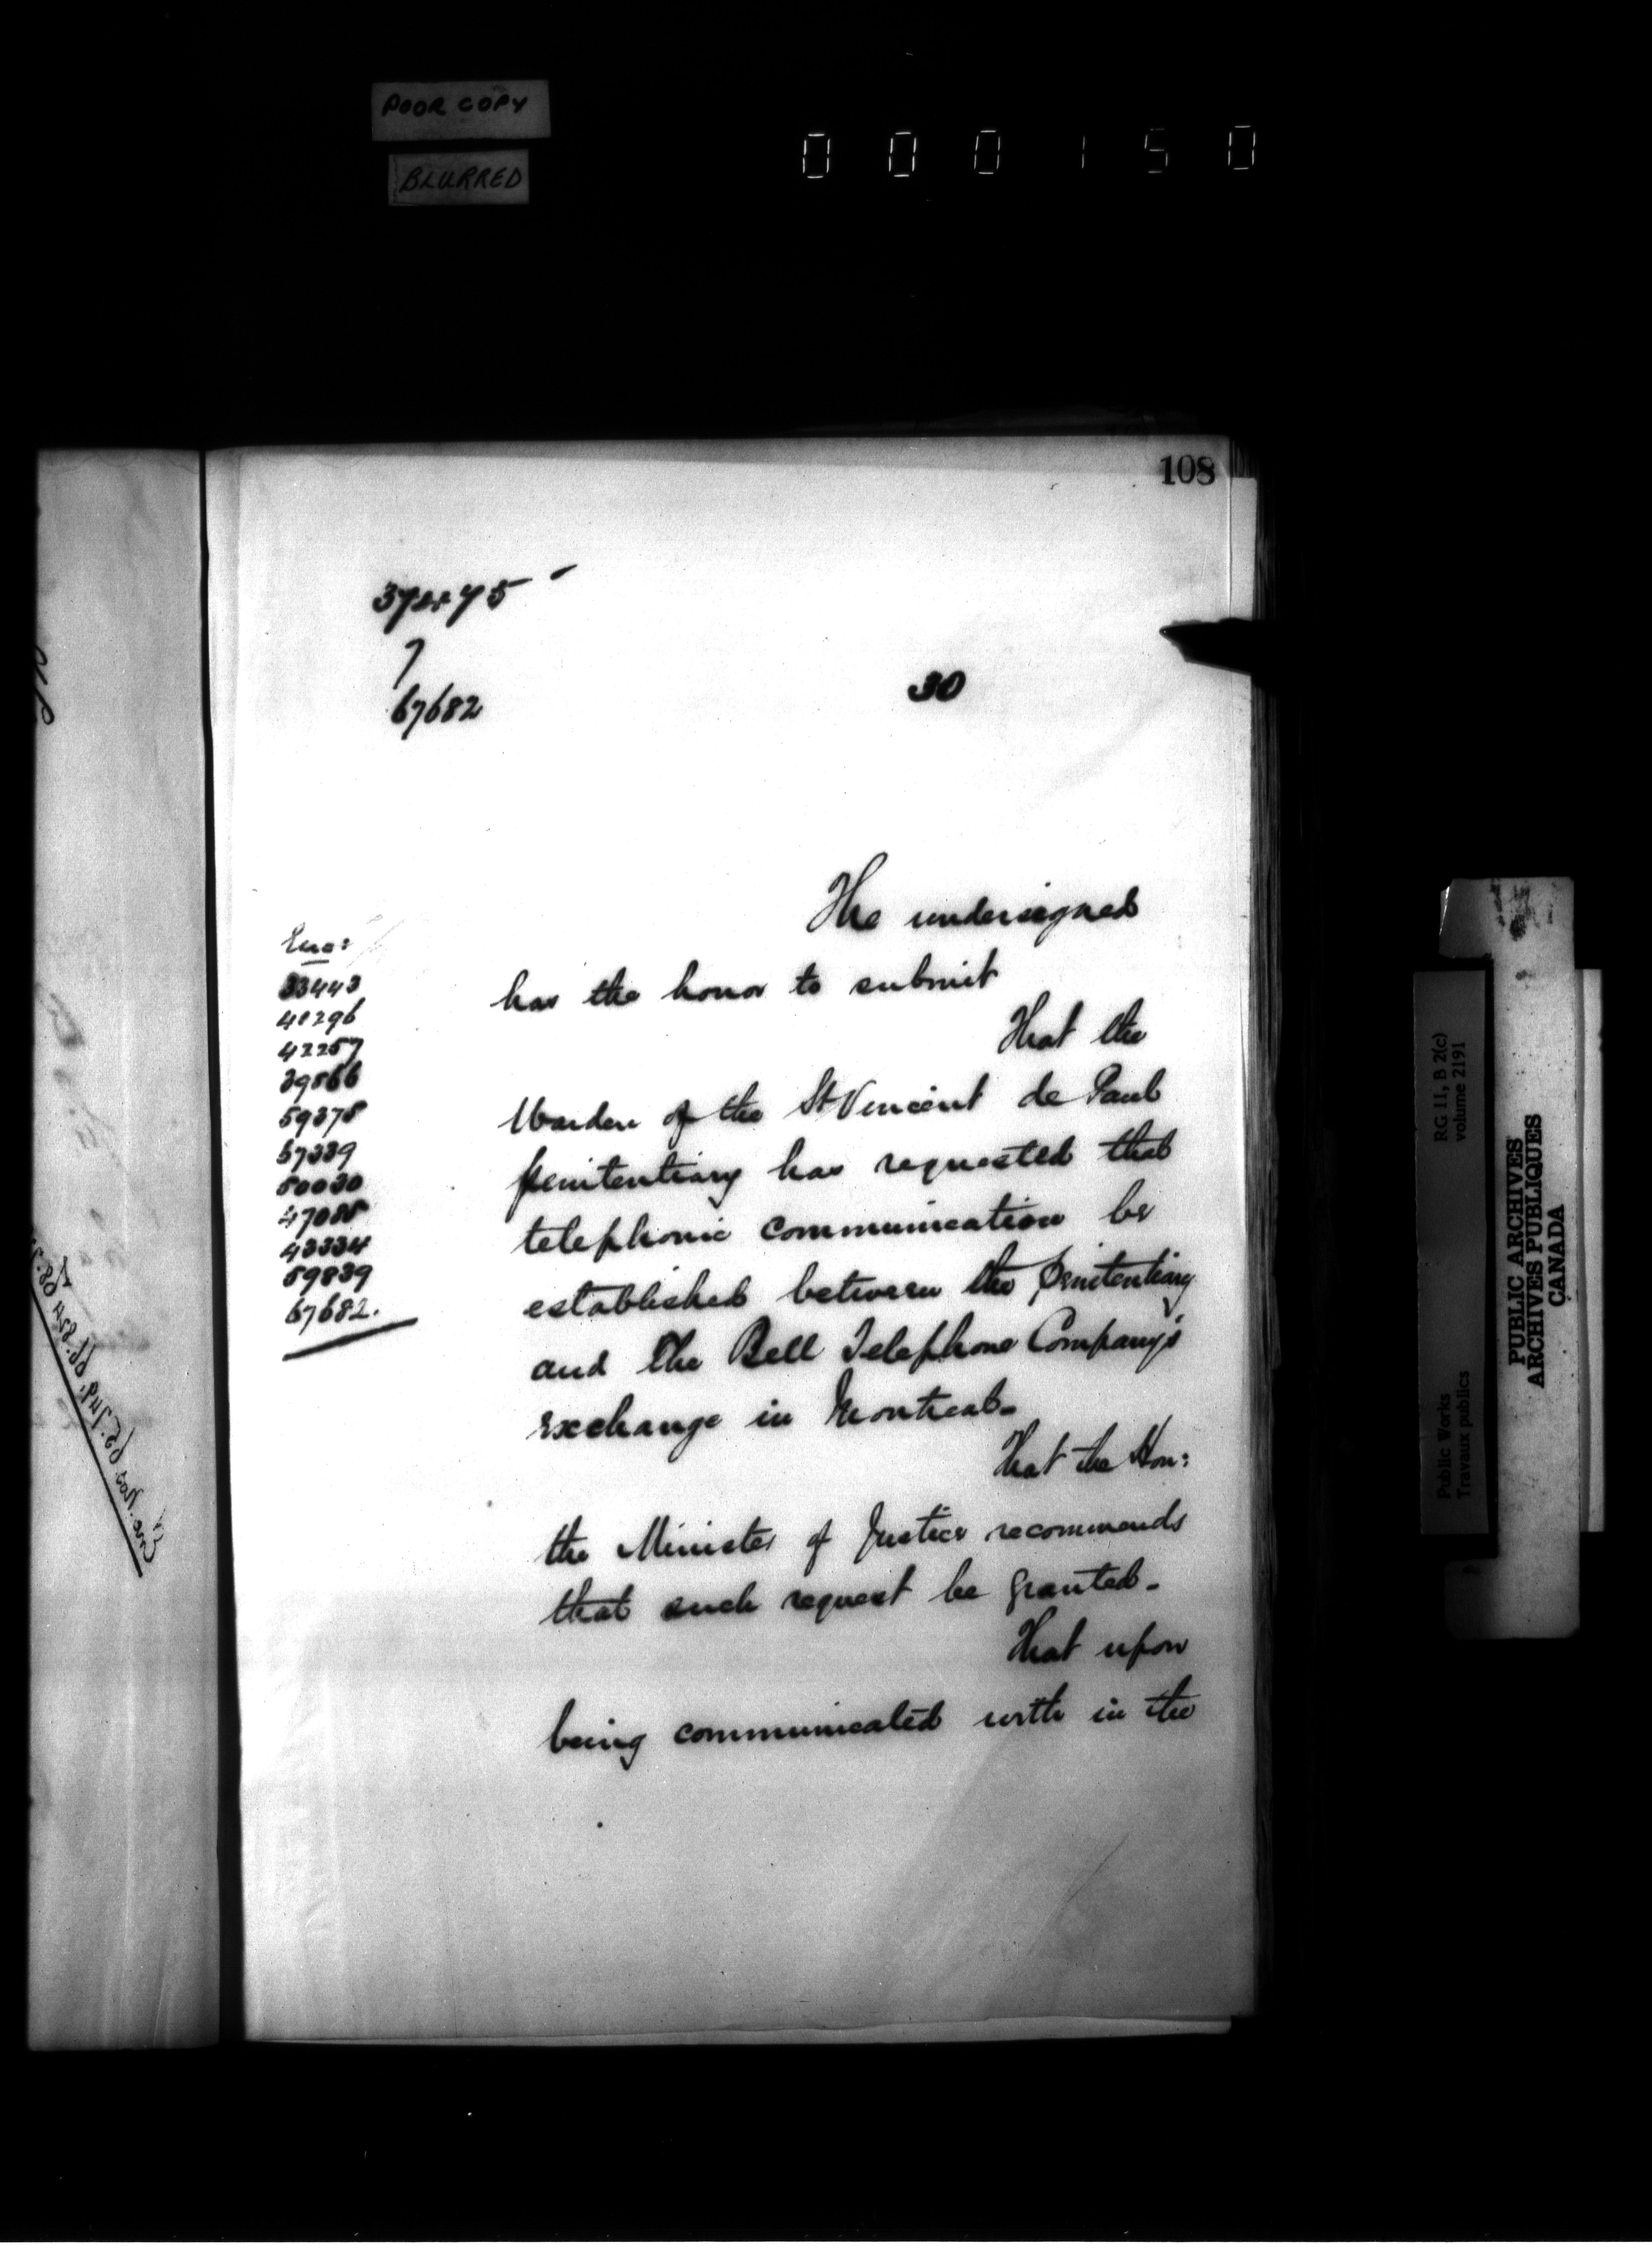 POOR COPY
BLURRED
000150
108
7
67682
30
The undersigned
has the honor to submit
That the
Warden of the St Vincent de Paul
penitentiary has requested that
telephonic communication be
established between the penitentiary
and the Bell Telephone Company's
exchange in Montreal-
That the Hon:
the Minister of Justice recommends
that such request be granted-
That upon
being communicated with in the
Enc:
33443
40296
42257
39566
59378
57339
50030
47085
43334
59839
67682.
RG 11, B 2(c)
volume 2191
Public Works
Travaux publics
PUBLIC ARCHIVES
ARCHIVES PUBLIQUES
CANADA